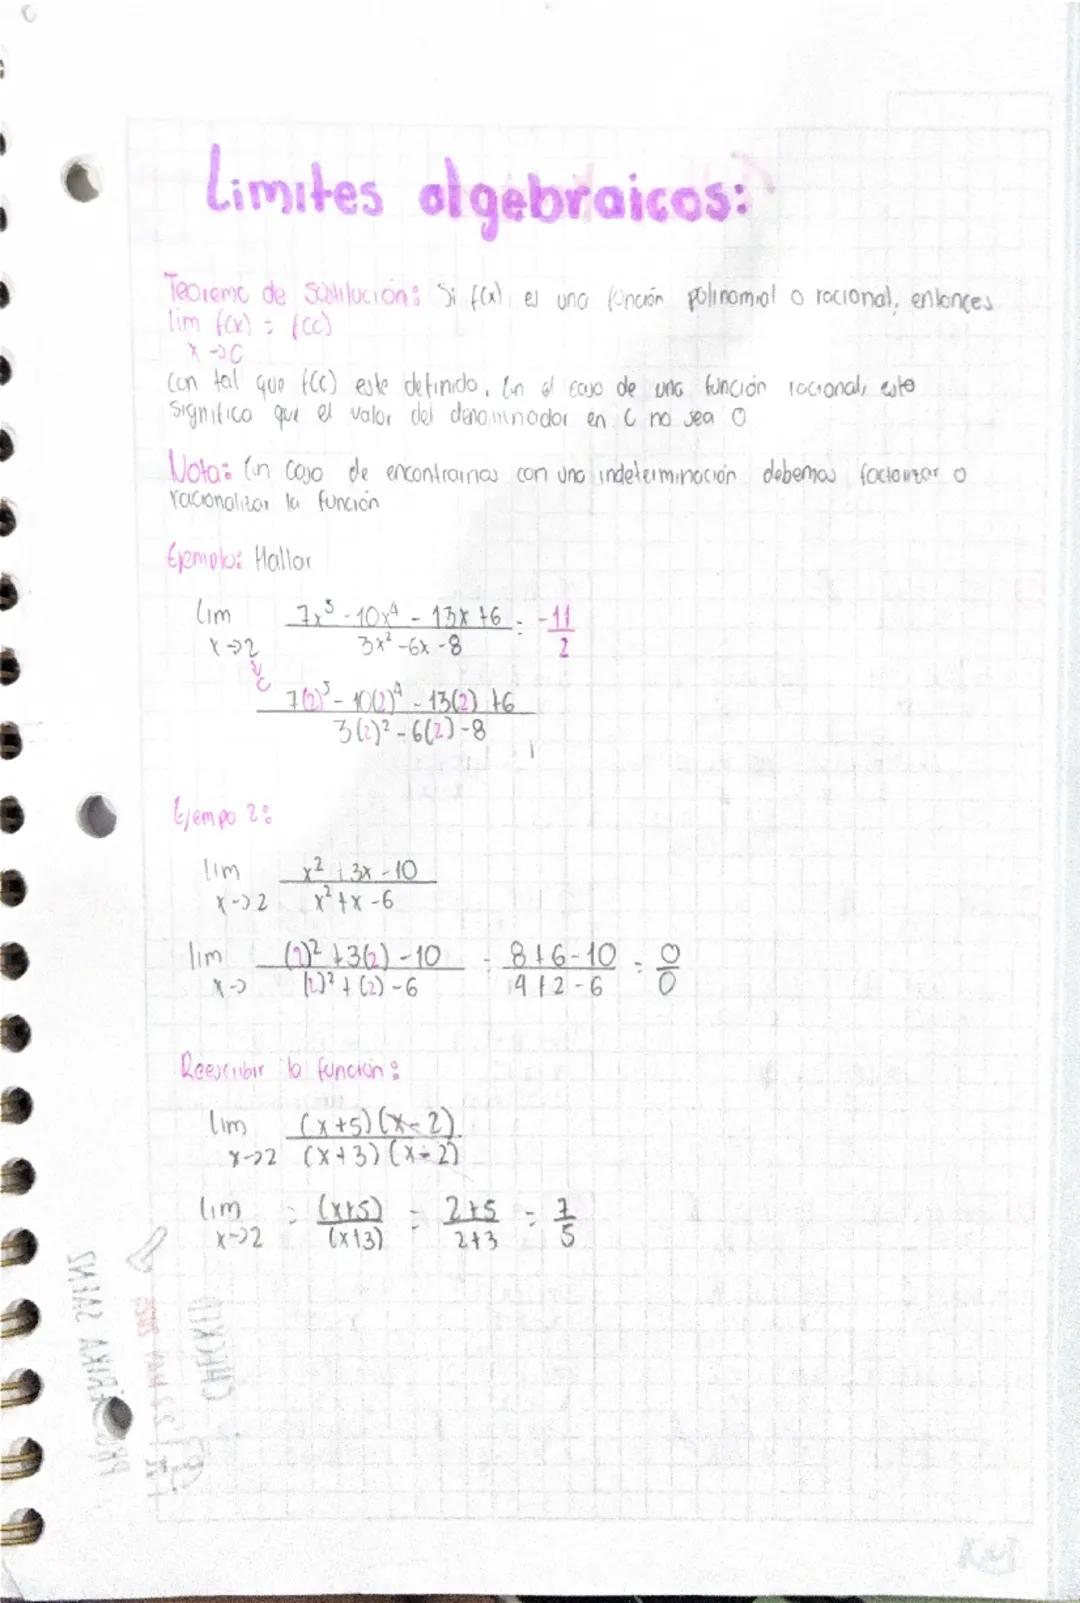 Limites algebraicos:
Teorema de Sustitución: Si f(x) es una función polinomial o racional, entonces
lim f(x) = f(c)
x→c
Con tal que f(c) este definido. En el caso de una función racional, esto
significa que el valor del denominador en c no sea 0
Nota: En caso de encontrarnos con una indeterminación debemos factorizar o
racionalizar la función
Ejemplo: Hallar
lim 7x⁵ - 10x⁴ - 13x + 6 = -11
x→2 3x² - 6x - 8 2
c 7(2)⁵ - 10(2)⁴ - 13(2) + 6
3(2)² - 6(2) - 8
Ejempo 2:
lim x² + 3x - 10
x→2 x² + x - 6
lim (2)² + 3(2) - 10 = 8+6-10 = 0
x→ (2)² + (2) - 6 4+2-6 0
Reescribir la función:
lim (x+5)(x-2)
x→2 (x+3)(x-2)
lim = (x+5) = 2+5 = 7
x→2 (x+3) 2+3 5